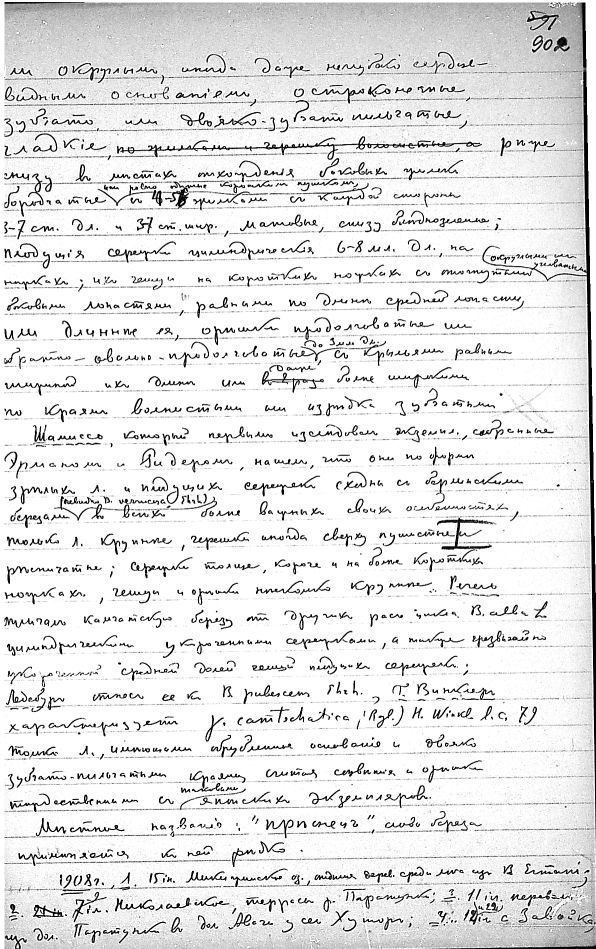 591
902
ли округлымъ, иногда даже неглубоко сердце-
виднымъ основаніемъ, остроконечные,
зубчато или двояко-зубчато пильчатые,
гладкіе, по жилкамъ и черешку волосистые, а рѣже
снизу въ мѣстахъ отхожденія боковыхъ жилокъ
или рѣдко одѣтые короткимъ пушкомъ,
бородчатые съ жилками съ каждой стороны
3-7 ст. дл. и ст. шир., матовые, снизу блѣднозеленые;
плодущія сережки цилиндрическія 6-8 дл., на
округлыми или
ножкахъ; ихъ чешуи на короткихъ ножкахъ съ отогнутыми
боковыми лопастями, равными по длинѣ средней лопасти,
или длиннѣе ея, орѣшки продолговатые или
до 3 мм дл.
обратно-овально-продолговатые, съ крыльями равными
даже
шириной ихъ длинѣ или въ 2 раза болѣе широкими
по краямъ волнистыми или изрѣдка зубчатыми
Шамиссо, который первымъ изслѣдовалъ экземпл., собранные
Эрманомъ и Ридеромъ, нашелъ, что они по формѣ
зрѣлыхъ л. и плодущихъ сережекъ сходны съ берлинскими
березами въ всѣхъ болѣе важныхъ своихъ особенностяхъ,
только л. крупнѣе, черешки иногда сверху пушистые и
рѣсничатые; сережки толще, короче и на болѣе короткихъ
ножкахъ, чешуи и орѣшки нѣсколько крупнѣе. Регель
отличалъ камчатскую березу отъ другихъ расъ цикла B. alba L
цилиндрическими укороченными сережками, а также чрезвычайно
укороченной средней долей чешуй плодущихъ сережекъ;
Ледебуръ отнесъ ее къ B pubescens Ehrh., Г. Винклеръ
характеризуетъ γ. camtschatica (Rgl.) H. Winkl. l. c. 79
только л., имѣющими обрубленное основаніе и двояко
зубчато-пильчатыми краями, считая сережки и орѣшки
таковыми
тождественными съ японскихъ экземпляровъ.
Мѣстное названіе: слово береза
примѣняется къ ней рѣдко.
1908 г. 1. 15 іл. Микижинское оз., опушка дерев. среди лѣса изъ B Ermani;
2. 7 іл. Николаевское, террасы р. Паратунки; 3. 11 іл. перевалъ
изъ дол. Паратунки въ дол. Авачи у сел Хуторъ; 4. 12 іл с Завойко,